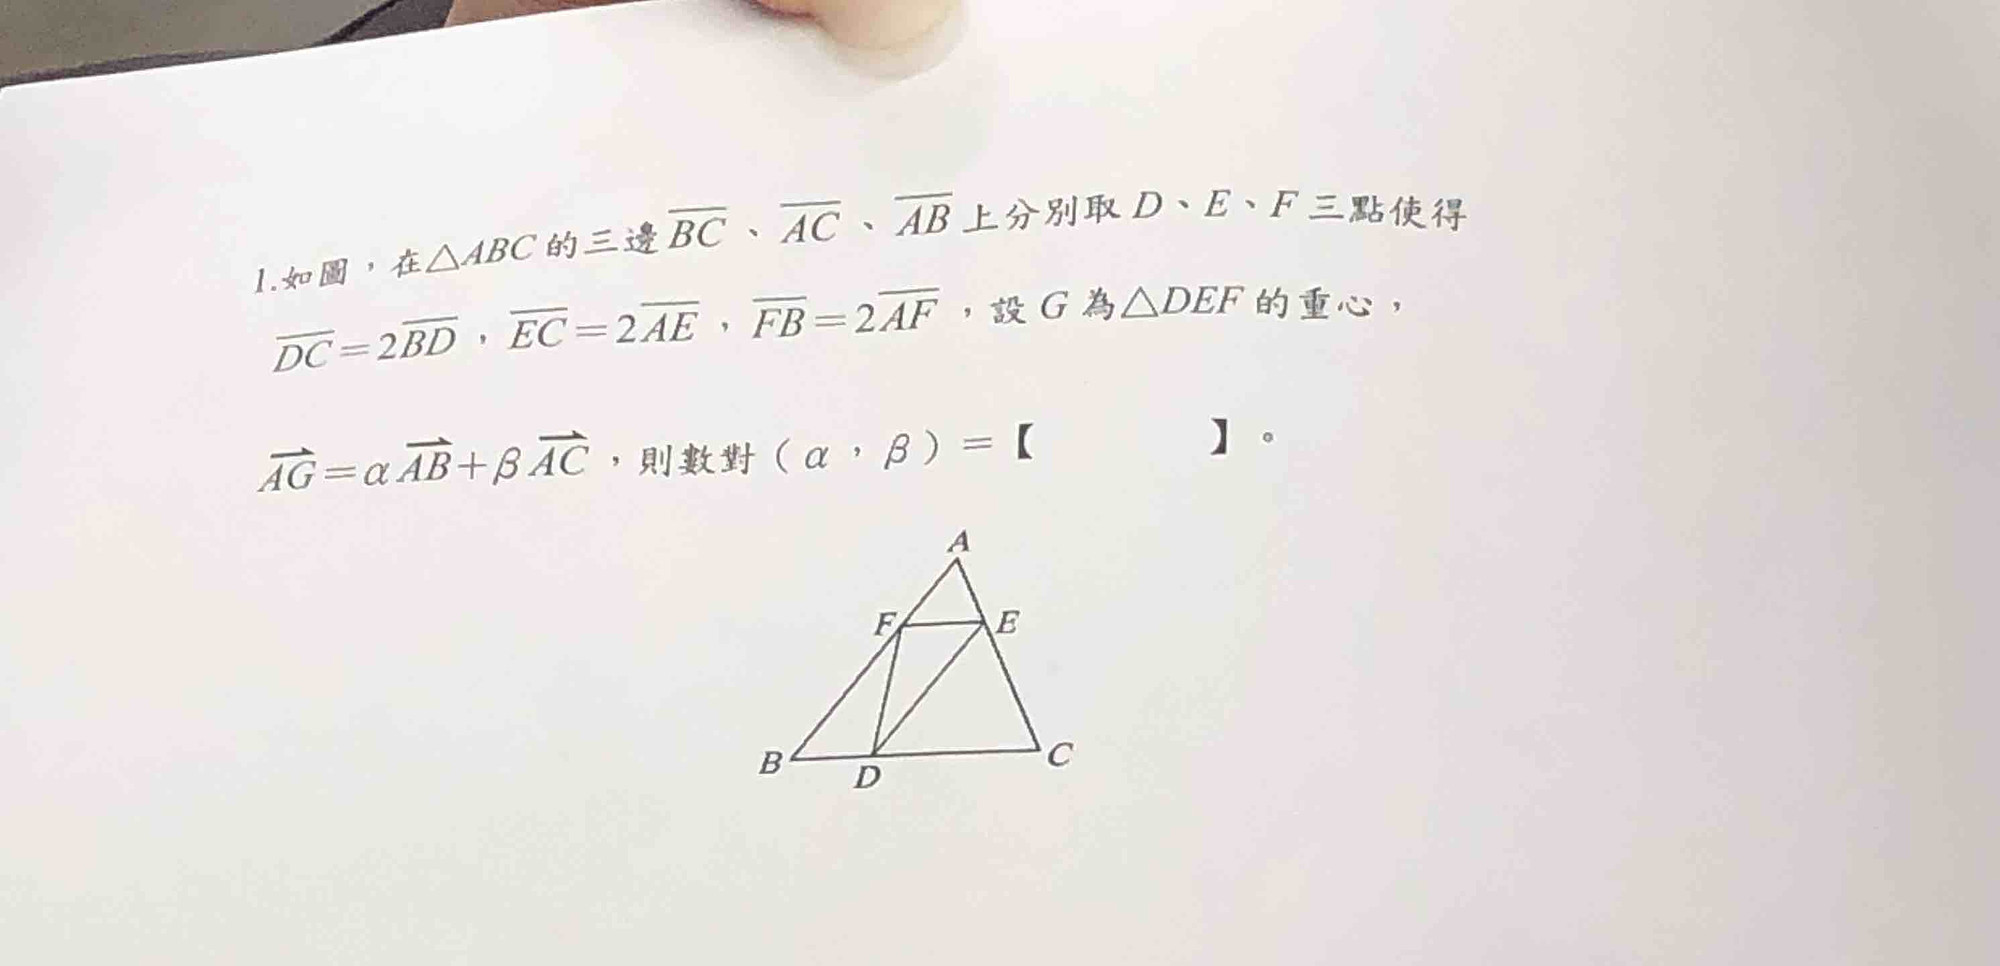 1.如圖，在△ABC的三邊 \overline{BC}、\overline{AC}、\overline{AB} 上分別取 D、E、F 三點使得
\overline{DC}=2\overline{BD}，\overline{EC}=2\overline{AE}，\overline{FB}=2\overline{AF}，設 G 為△DEF 的重心，
\overrightarrow{AG}=α\overrightarrow{AB}+β\overrightarrow{AC}，則數對（α，β）=【 】。
A
F E
B D C